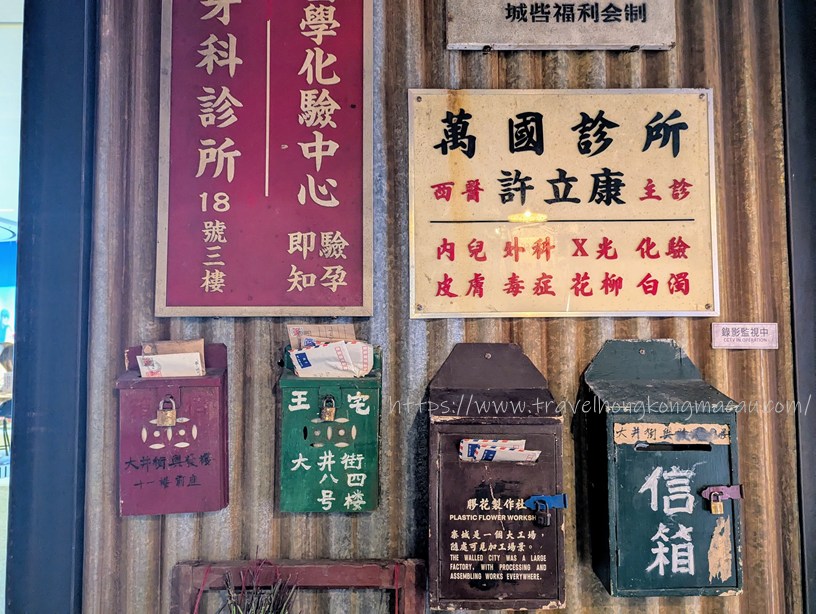 城砦福利会制
學化驗中心
驗孕
即知
牙科診所
18號三樓
萬國診所
西醫 許立康 主診
內兒 外科 X光 化驗
皮膚 毒症 花柳 白濁
錄影監視中
CCTV IN OPERATION
王宅
大
井八号
街四樓
膠花製作社
PLASTIC FLOWER WORKSH
寨城是一個大工場,
隨處可見加工場景。
THE WALLED CITY WAS A LARGE
FACTORY, WITH PROCESSING AND
ASSEMBLING WORKS EVERYWHERE.
信箱
https://www.travelhongkongmacau.com/